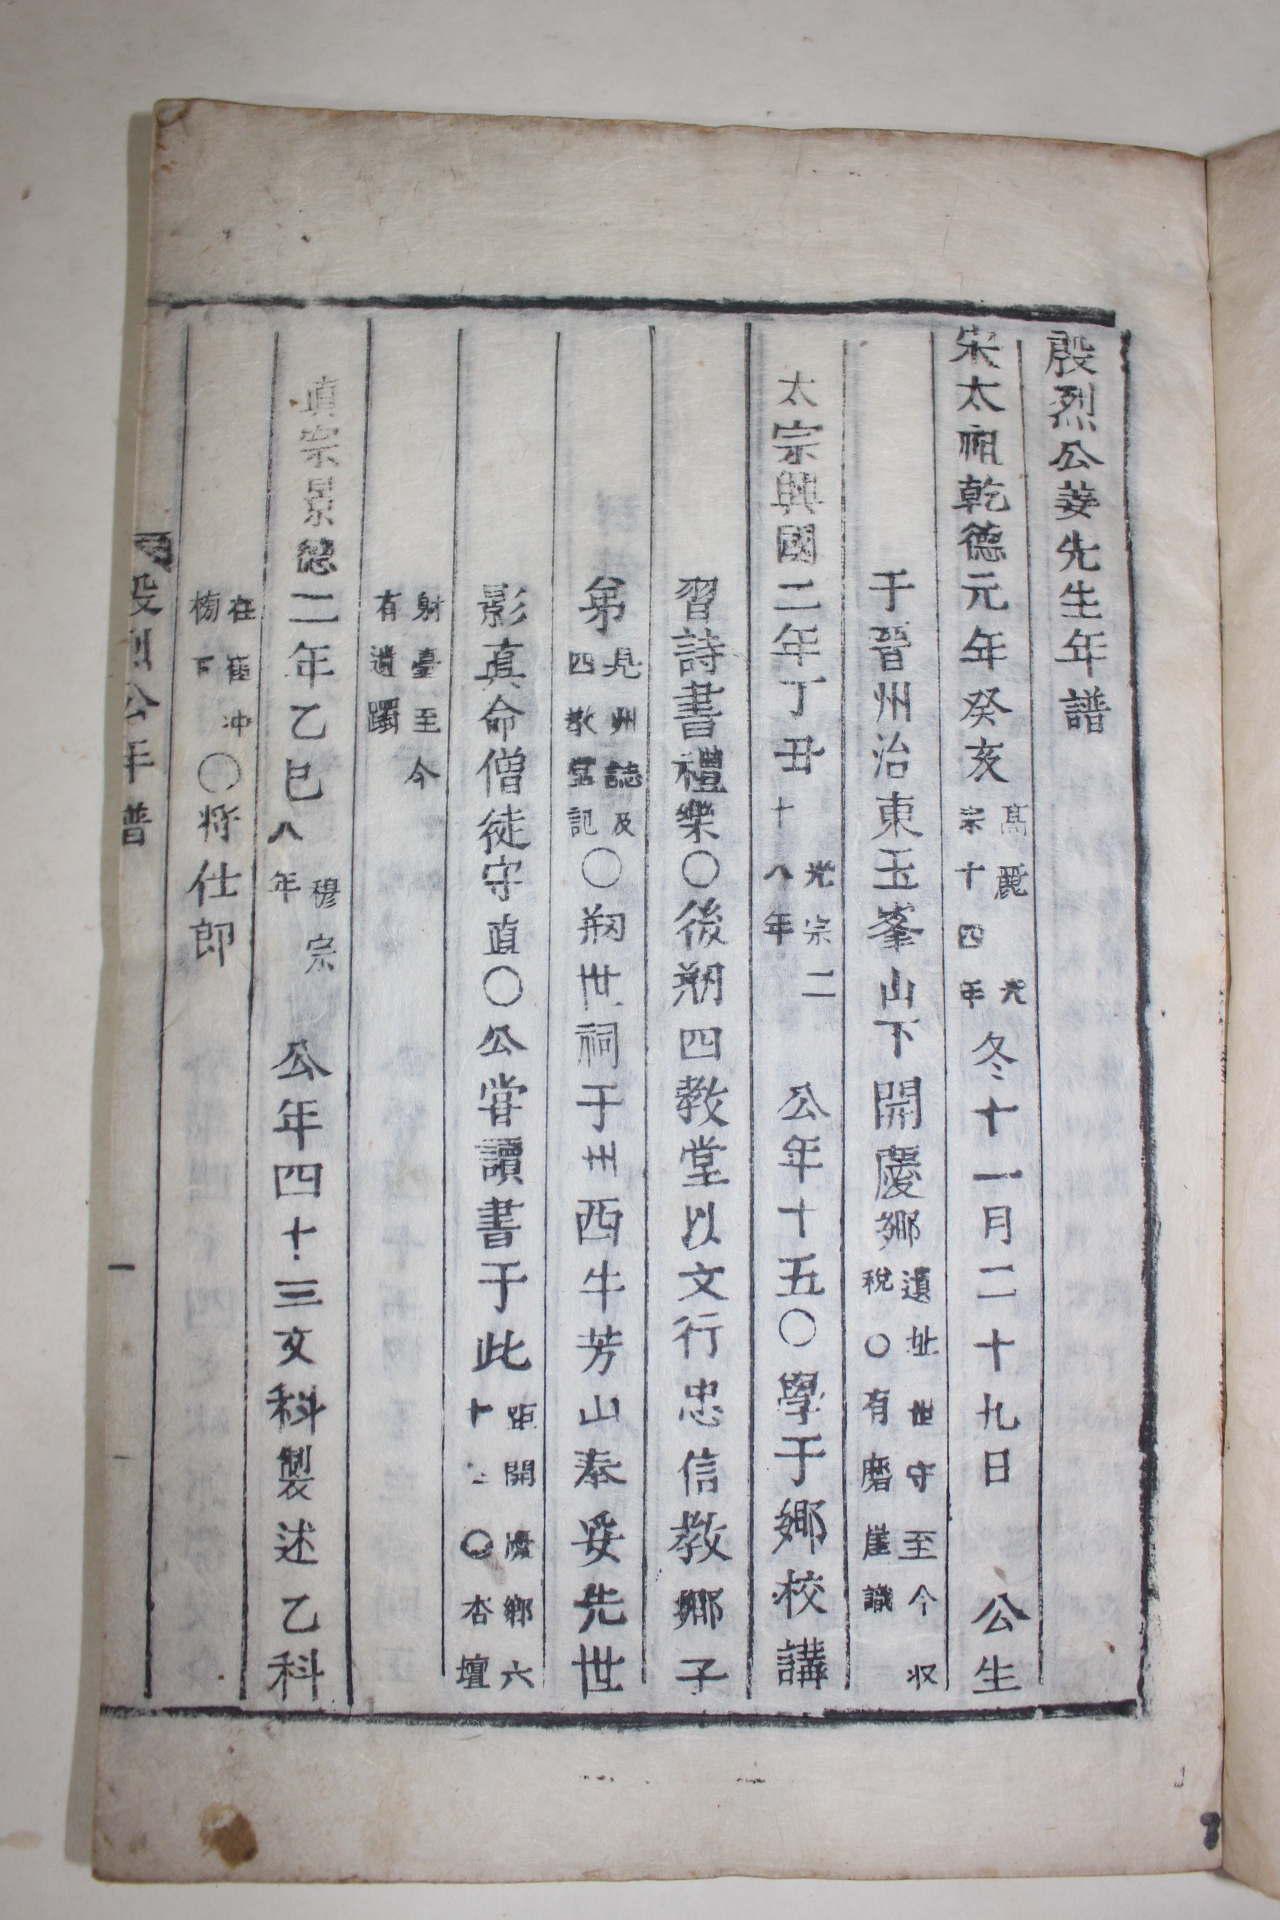 殷烈公姜先生年譜
宋太祖乾德元年癸亥高麗光宗十四年冬十一月二十九日 公生
于晉州治東玉峯山下開慶鄉遺址世守至今収稅○有磨崖識
太宗興國二年丁丑光宗二十八年 公年十五○學于鄉校講
習詩書禮樂○後刱四教堂以文行忠信教鄉子
弟見州誌及四教堂記○刱世祠于州西牛芳山奉妥先世
影真命僧徒守直○公甞讀書于此距開慶鄉六十里○杏壇
射臺至今有遺躅
真宗景德二年乙巳穆宗八年 公年四十三文科製述乙科
在崔冲榜下○將仕郎
殷烈公年譜
一